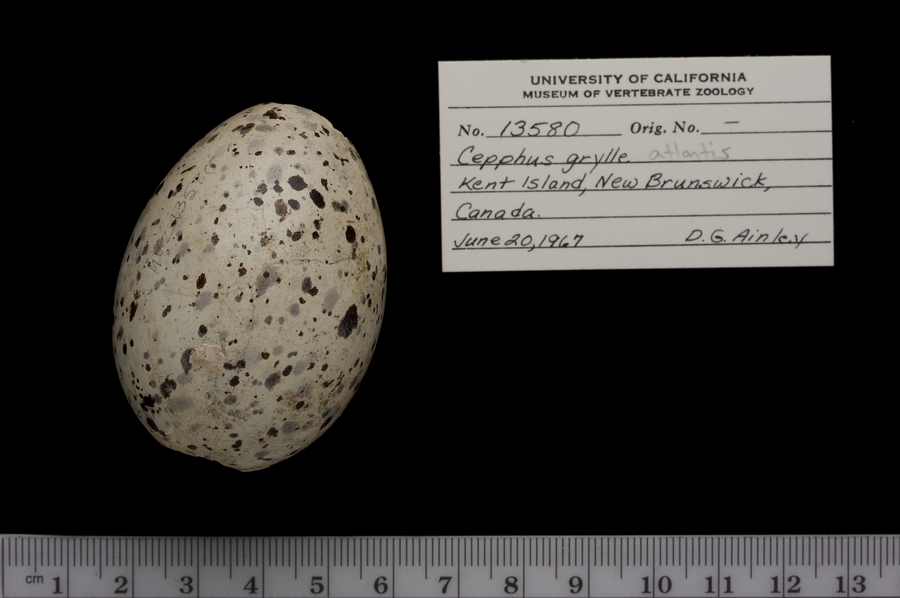 UNIVERSITY OF CALIFORNIA
MUSEUM OF VERTEBRATE ZOOLOGY
No. 13580 Orig. No. —
Cepphus grylle atlantis
Kent Island, New Brunswick,
Canada.
June 20, 1967 D.G. Ainley
cm 1 2 3 4 5 6 7 8 9 10 11 12 13